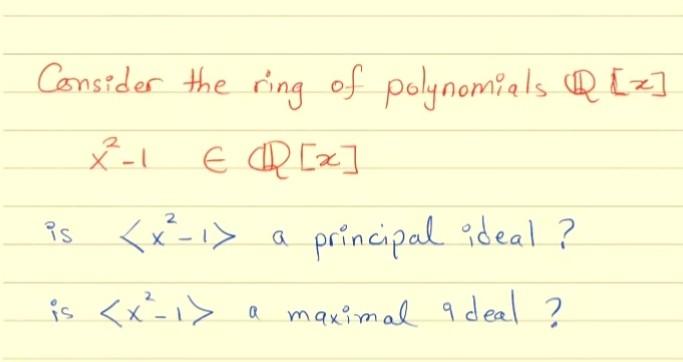 Consider the ring of polynomials ℚ[x]
x²-1 ∈ ℚ[x]
is <x²-1> a principal ideal ?
is <x²-1> a maximal ideal ?